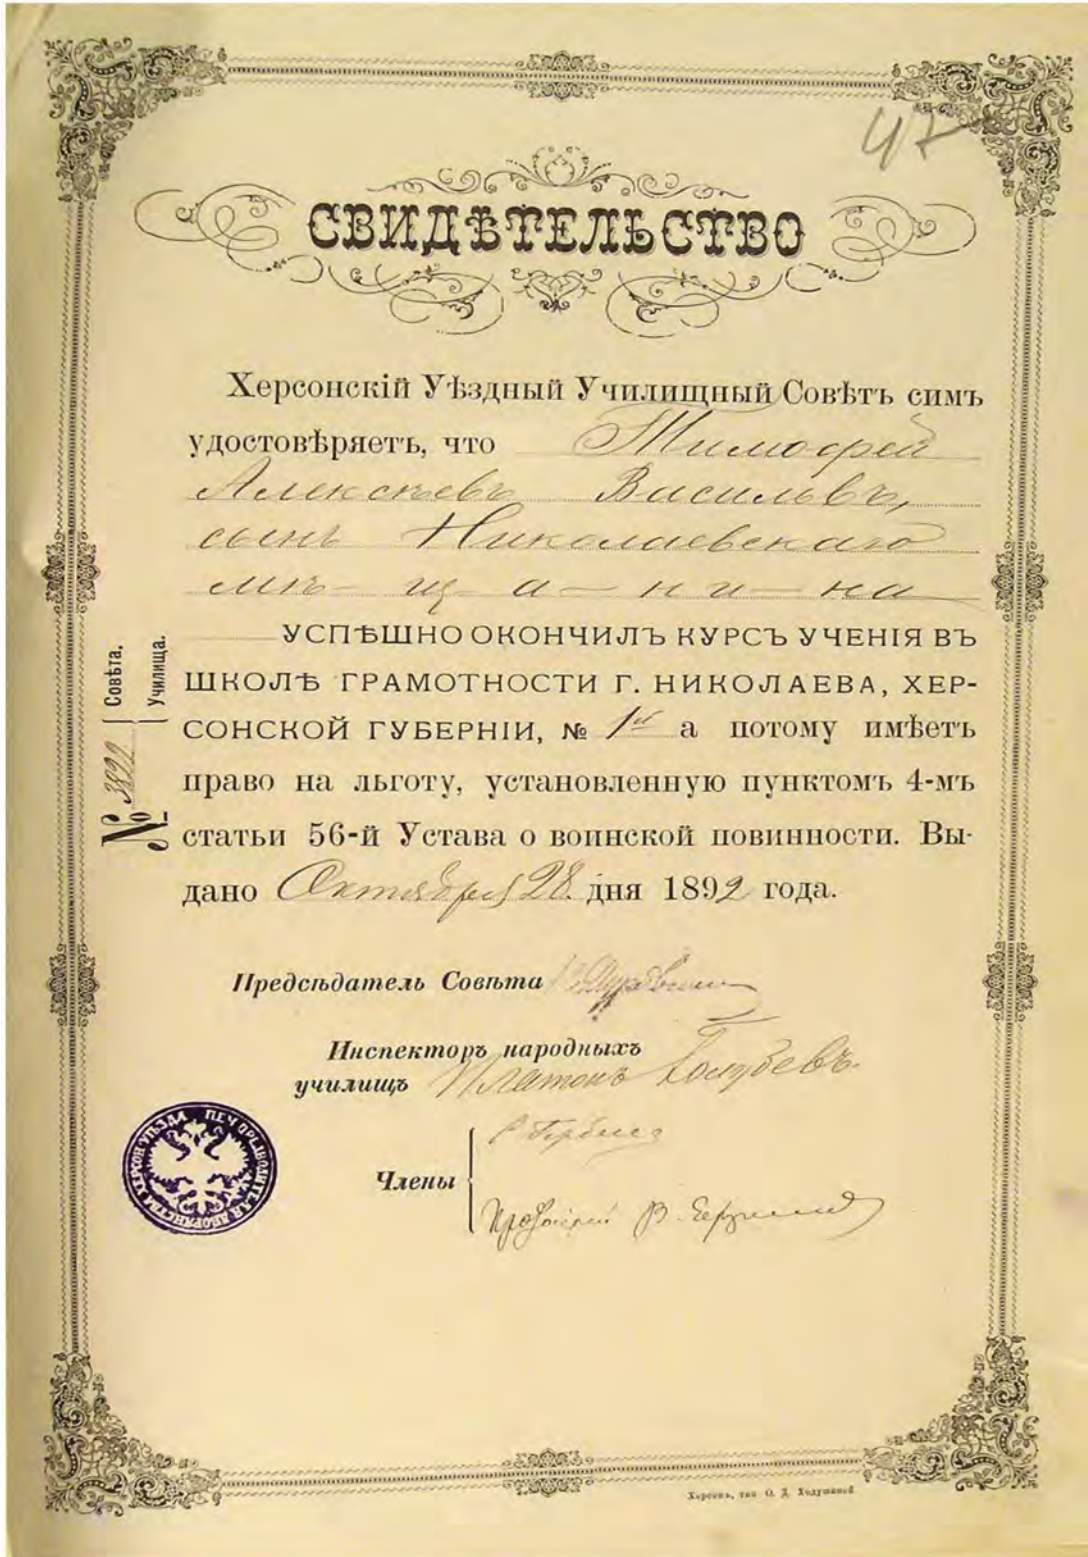 47
СВИДѢТЕЛЬСТВО
Херсонскій Уѣздный Училищный Совѣтъ симъ
удостовѣряетъ, что Тимофей
Алексѣевъ Васильевъ,
сынъ Николаевскаго
мѣ-щ-а-н-и-на
УСПѢШНО ОКОНЧИЛЪ КУРСЪ УЧЕНІЯ ВЪ
ШКОЛѢ ГРАМОТНОСТИ Г. НИКОЛАЕВА, ХЕР-
СОНСКОЙ ГУБЕРНІИ, № 1й а потому имѣетъ
право на льготу, установленную пунктомъ 4-мъ
статьи 56-й Устава о воинской повинности. Вы-
дано Октября 28 дня 1892 года.
№ 3822 Совѣта.
Училища.
Предсѣдатель Совѣта
Инспекторъ народныхъ
училищъ Платонъ Голубевъ
Члены
Протоіерей В.
Херсонъ, тип. О. Д. Ходушиной